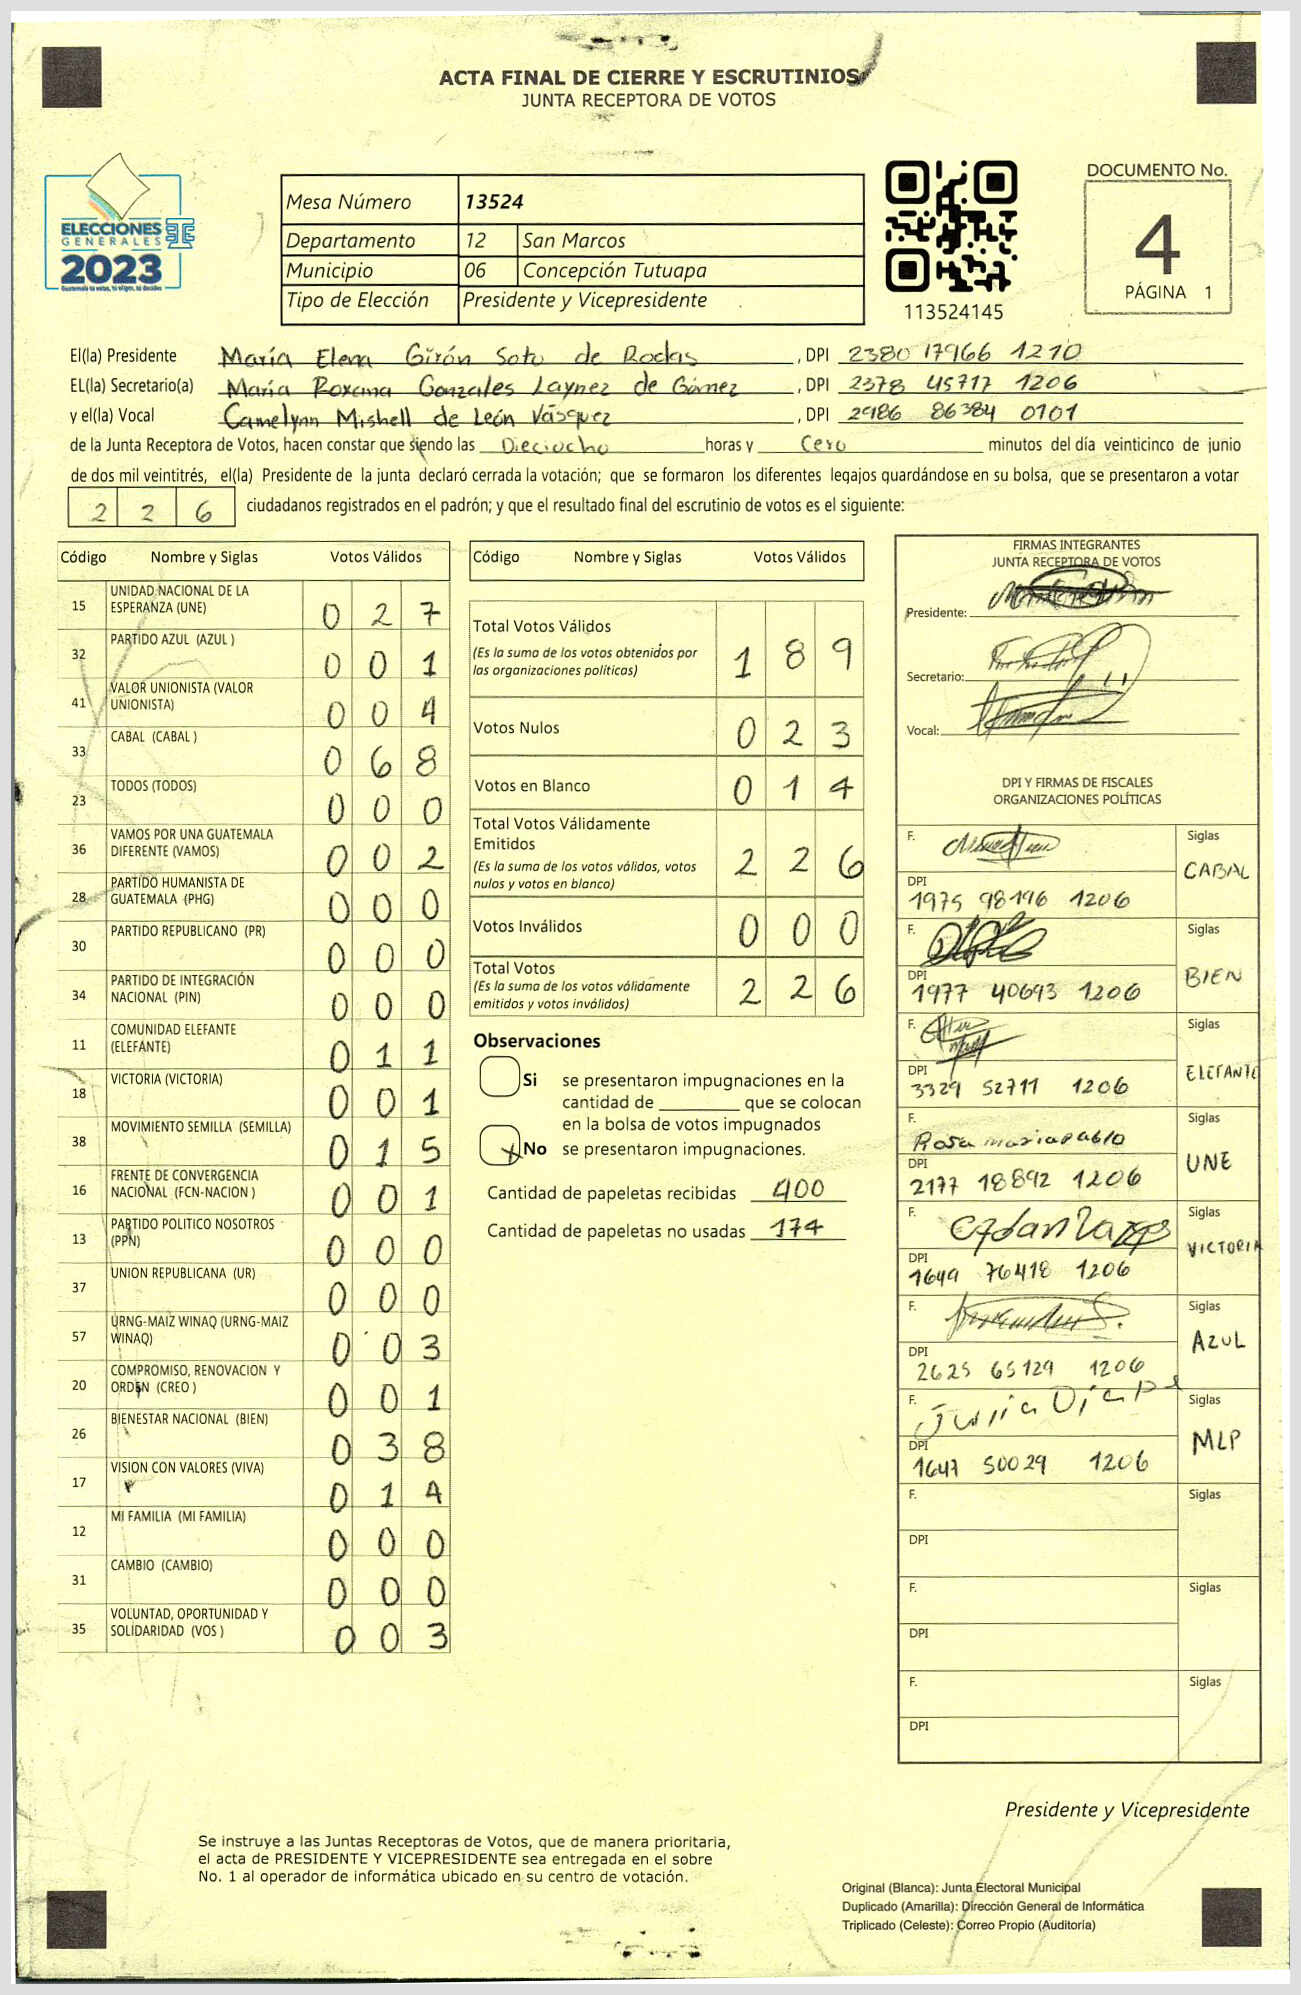 ACTA FINAL DE CIERRE Y ESCRUTINIOS
JUNTA RECEPTORA DE VOTOS
ELECCIONES
GENERALES
2023
Mesa Número 13524
Departamento 12 San Marcos
Municipio 06 Concepción Tutuapa
Tipo de Elección Presidente y Vicepresidente
113524145
DOCUMENTO No.
4
PÁGINA 1
El(la) Presidente María Elena Girón Soto de Rodas, DPI 2380 17966 1210
EL(la) Secretario(a) María Roxana Gonzales Laynez de Gómez, DPI 2378 45717 1206
y el(la) Vocal Camelynn Mishell de León Vásquez, DPI 2986 86384 0101
de la Junta Receptora de Votos, hacen constar que siendo las Dieciocho horas y Cero minutos del día veinticinco de junio
de dos mil veintitrés, el(la) Presidente de la junta declaró cerrada la votación; que se formaron los diferentes legajos guardándose en su bolsa, que se presentaron a votar
2 2 6 ciudadanos registrados en el padrón; y que el resultado final del escrutinio de votos es el siguiente:
Código Nombre y Siglas Votos Válidos
15 UNIDAD NACIONAL DE LA
ESPERANZA (UNE) 0 2 7
32 PARTIDO AZUL (AZUL ) 0 0 1
41 VALOR UNIONISTA (VALOR
UNIONISTA) 0 0 4
33 CABAL (CABAL ) 0 6 8
23 TODOS (TODOS) 0 0 0
36 VAMOS POR UNA GUATEMALA
DIFERENTE (VAMOS) 0 0 2
28 PARTIDO HUMANISTA DE
GUATEMALA (PHG) 0 0 0
30 PARTIDO REPUBLICANO (PR) 0 0 0
34 PARTIDO DE INTEGRACIÓN
NACIONAL (PIN) 0 0 0
11 COMUNIDAD ELEFANTE
(ELEFANTE) 0 1 1
18 VICTORIA (VICTORIA) 0 0 1
38 MOVIMIENTO SEMILLA (SEMILLA) 0 1 5
16 FRENTE DE CONVERGENCIA
NACIONAL (FCN-NACION ) 0 0 1
13 PARTIDO POLITICO NOSOTROS
(PPN) 0 0 0
37 UNION REPUBLICANA (UR) 0 0 0
57 URNG-MAIZ WINAQ (URNG-MAIZ
WINAQ) 0 0 3
20 COMPROMISO, RENOVACION Y
ORDEN (CREO ) 0 0 1
26 BIENESTAR NACIONAL (BIEN) 0 3 8
17 VISION CON VALORES (VIVA) 0 1 4
12 MI FAMILIA (MI FAMILIA) 0 0 0
31 CAMBIO (CAMBIO) 0 0 0
35 VOLUNTAD, OPORTUNIDAD Y
SOLIDARIDAD (VOS ) 0 0 3
Código Nombre y Siglas Votos Válidos
Total Votos Válidos 1 8 9
(Es la suma de los votos obtenidos por
las organizaciones políticas)
Votos Nulos 0 2 3
Votos en Blanco 0 1 4
Total Votos Válidamente
Emitidos 2 2 6
(Es la suma de los votos válidos, votos
nulos y votos en blanco)
Votos Inválidos 0 0 0
Total Votos 2 2 6
(Es la suma de los votos válidamente
emitidos y votos inválidos)
Observaciones
Si se presentaron impugnaciones en la
cantidad de ________ que se colocan
en la bolsa de votos impugnados
X No se presentaron impugnaciones.
Cantidad de papeletas recibidas 400
Cantidad de papeletas no usadas 174
FIRMAS INTEGRANTES
JUNTA RECEPTORA DE VOTOS
Presidente:
Secretario:
Vocal:
DPI Y FIRMAS DE FISCALES
ORGANIZACIONES POLÍTICAS
F. Siglas
CABAL
DPI
1975 98196 1206
F. Siglas
BIEN
DPI
1977 40693 1206
F. Siglas
ELEFANTE
DPI
3329 52711 1206
F. Siglas
Rosa maria pablo
UNE
DPI
2177 18892 1206
F. Siglas
VICTORIA
DPI
1649 76418 1206
F. Siglas
AZUL
DPI
2625 65129 1206
F. Siglas
MLP
DPI
1647 50029 1206
F. Siglas
DPI
F. Siglas
DPI
F. Siglas
DPI
Presidente y Vicepresidente
Se instruye a las Juntas Receptoras de Votos, que de manera prioritaria,
el acta de PRESIDENTE Y VICEPRESIDENTE sea entregada en el sobre
No. 1 al operador de informática ubicado en su centro de votación.
Original (Blanca): Junta Electoral Municipal
Duplicado (Amarilla): Dirección General de Informática
Triplicado (Celeste): Correo Propio (Auditoría)